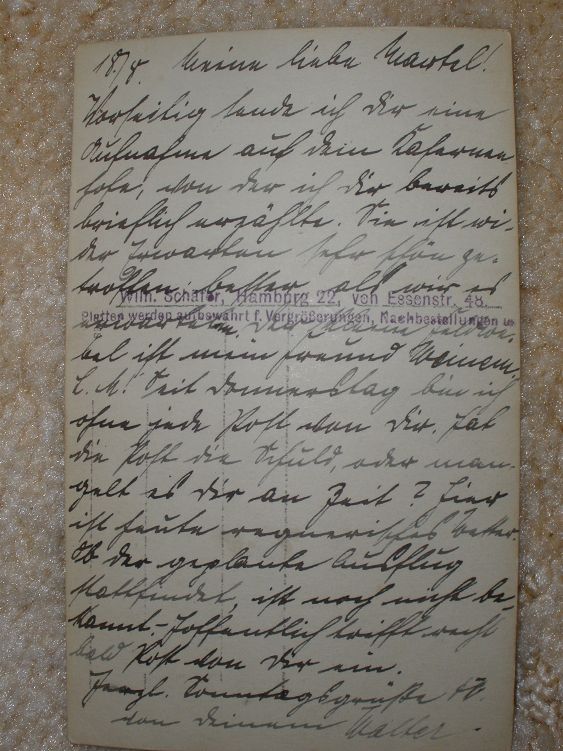 18/8. Meine liebe Martel!
Vorseitig sende ich dir eine
Aufnahme auf dem Kasernen
hofe, von der ich dir bereits
brieflich erzählte. Sie ist wi-
der Erwarten sehr schön ge-
troffen, besser als wir es
Wilh. Schäfer, Hamburg 22, von Essenstr. 48.
Platten werden aufbewahrt f. Vergrößerungen, Nachbestellungen
erwarteten. Der
bel ist mein Freund
Seit Donnerstag bin ich
ohne jede Post von dir. Hat
die Post die Schuld, oder man-
gelt es dir an Zeit? Hier
ist heute regnerisches Wetter.
Ob der geplante Ausflug
stattfindet, ist noch nicht be-
kannt. - Hoffentlich trifft recht
bald Post von dir ein.
Herzl. Sonntagsgrüße
von deinem Walter.